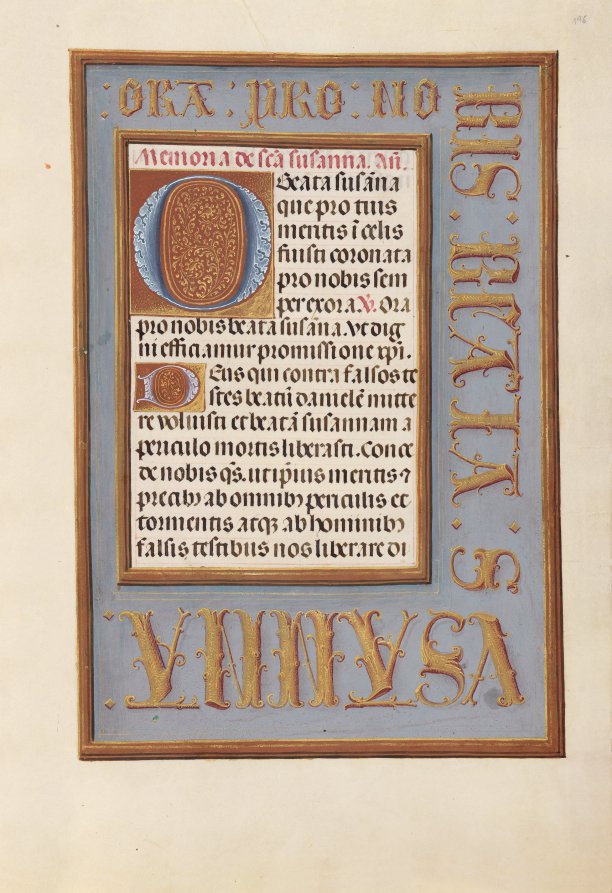 196
: ORA : PRO : NO
BIS · BEATA · S
VSANNA
Memoria de scā susanna. Añ.
O Beata susāna
que pro tuis
meritis ī celis
fuisti coronata
pro nobis sem
per exora. V. Ora
pro nobis beata susāna. Vt dig
ni efficiamur promissione xpī.
Deus qui contra falsos te
stes beatū danielē mitte
re voluisti et beatā susannam a
periculo mortis liberasti. Conce
de nobis qs. ut ipīus meritis ⁊
precibꝫ ab omnibꝫ periculis et
tormentis atqꝫ ab hominibꝫ
falsis testibus nos liberare di